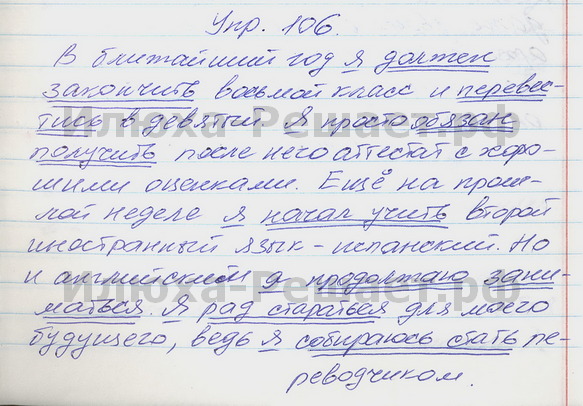 Упр. 106.
В ближайший год я должен
закончить восьмой класс и перевес-
тись в девятый. Я просто обязан
получить после него аттестат с хоро-
шими оценками. Ещё на прош-
лой неделе я начал учить второй
иностранный язык - испанский. Но
и английский я продолжаю зани-
маться. Я рад стараться для моего
будущего, ведь я собираюсь стать пе-
реводчиком.
Илюха-Решает.рф
Илюха-Решает.рф